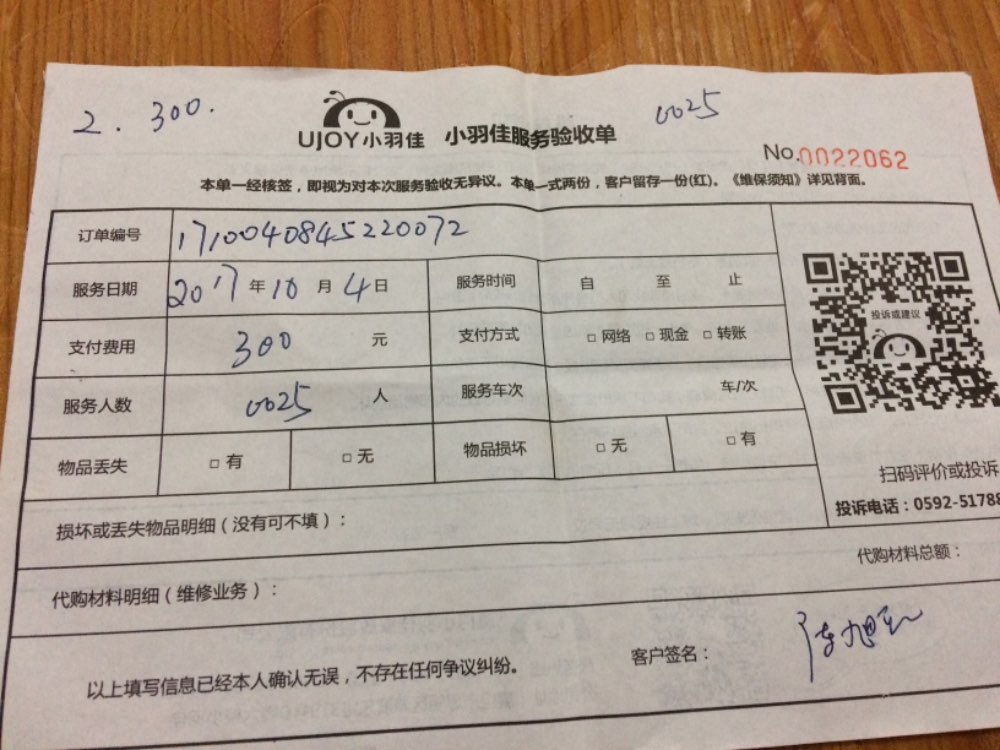 2. 300.
0025
UJOY小羽佳 小羽佳服务验收单
No.0022062
本单一经核签，即视为对本次服务验收无异议。本单一式两份，客户留存一份(红)。《维保须知》详见背面。
订单编号 1710040845220072
服务日期 2017年10月4日 服务时间 自 至 止
投诉或建议
支付费用 300 元 支付方式 □ 网络 □ 现金 □ 转账
服务人数 0025 人 服务车次 车/次
物品丢失 □ 有 □ 无 物品损坏 □ 无 □ 有
扫码评价或投诉
投诉电话：0592-51788
损坏或丢失物品明细（没有可不填）：
代购材料总额：
代购材料明细（维修业务）：
客户签名：
以上填写信息已经本人确认无误，不存在任何争议纠纷。